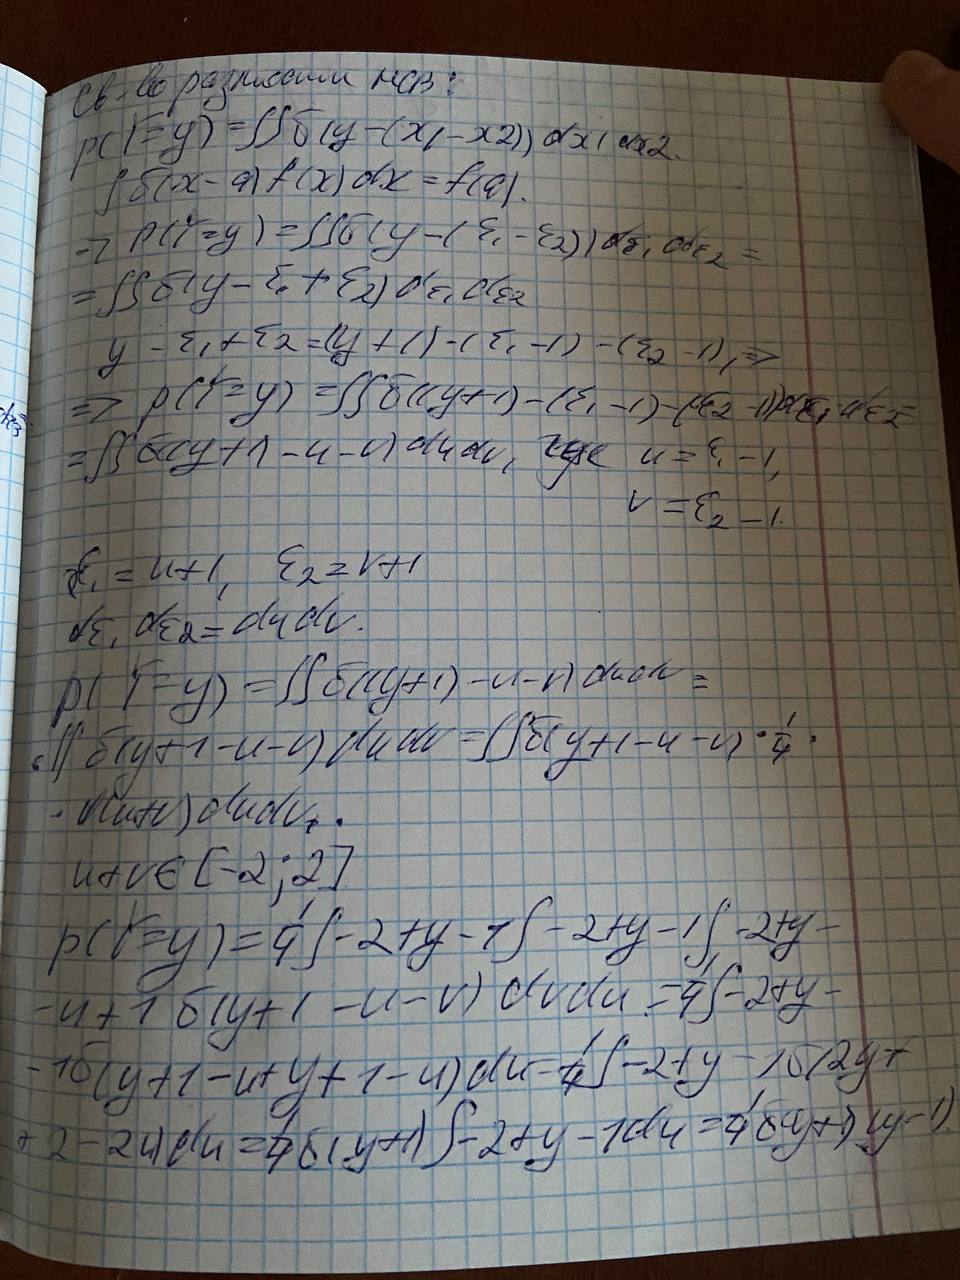 Св-во разности НСВ:
p(Y=y) = ∫∫δ(y-(x1-x2)) dx1 dx2.
∫δ(x-a) f(x) dx = f(a).
-> p(Y=y) = ∫∫δ(y-(ξ1-ξ2)) dξ1 dξ2 =
= ∫∫δ(y-ξ1+ξ2) dξ1 dξ2
y-ξ1+ξ2 = (y+1)-(ξ1-1)-(ξ2-1), =>
=> p(Y=y) = ∫∫δ((y+1)-(ξ1-1)-(ξ2-1)) dξ1 dξ2 =
= ∫∫δ(y+1)-u-v) du dv, где u = ξ1-1,
v = ξ2-1.
ξ1 = u+1, ξ2 = v+1
dξ1 dξ2 = du dv.
p(Y=y) = ∫∫δ((y+1)-u-v) du dv =
∫∫ δ(y+1-u-v) du dv = ∫∫δ(y+1-u-v)·1/4·
· (u+v) du dv.
u+v ∈ [-2; 2]
p(Y=y) = 1/4 ∫-2+y-1∫-2+y-1∫-2+y-
-u+1 δ(y+1-u-v) dv du = 1/4 ∫-2+y-
-1δ(y+1-u+y+1-u) du = 1/4 ∫-2+y-1δ(2y+
+2-2u) du = 1/4 δ(y+1) ∫-2+y-1 du = 1/4 δ(y+1)(y-1)